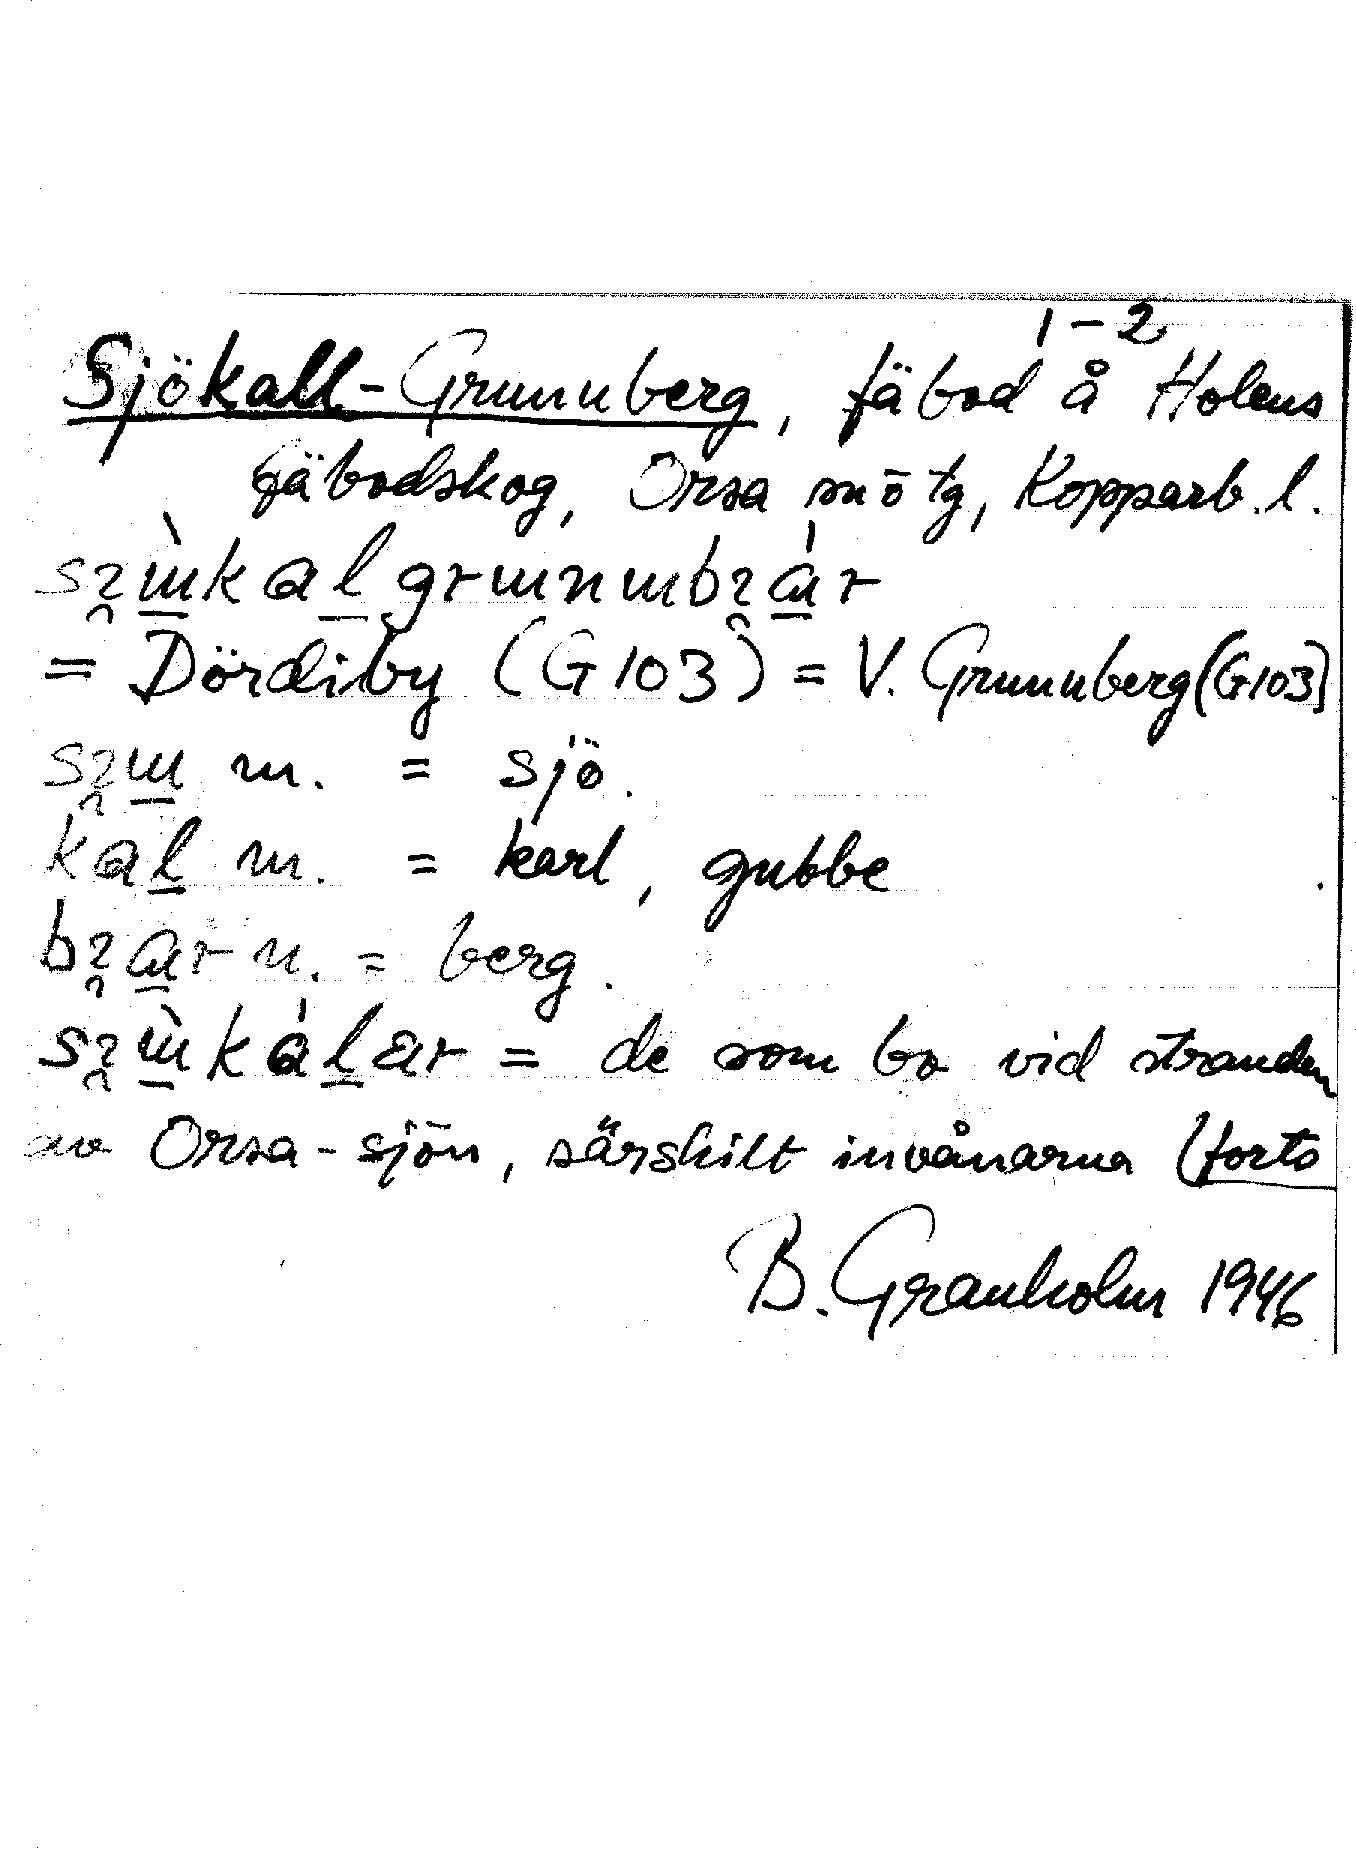 1-2
Sjökall-Grunnuberg, fäbod å Holens
fäbodskog, Orsa snö tg, Kopparb. l.
= Dördiby (G103) = V. Grunnuberg (G103)
m. = sjö.
kal m. = karl, gubbe
n. = berg.
= de som bo vid stranden
av Orsa-sjön, särskilt invånarna (forts
B. Granholm 1946